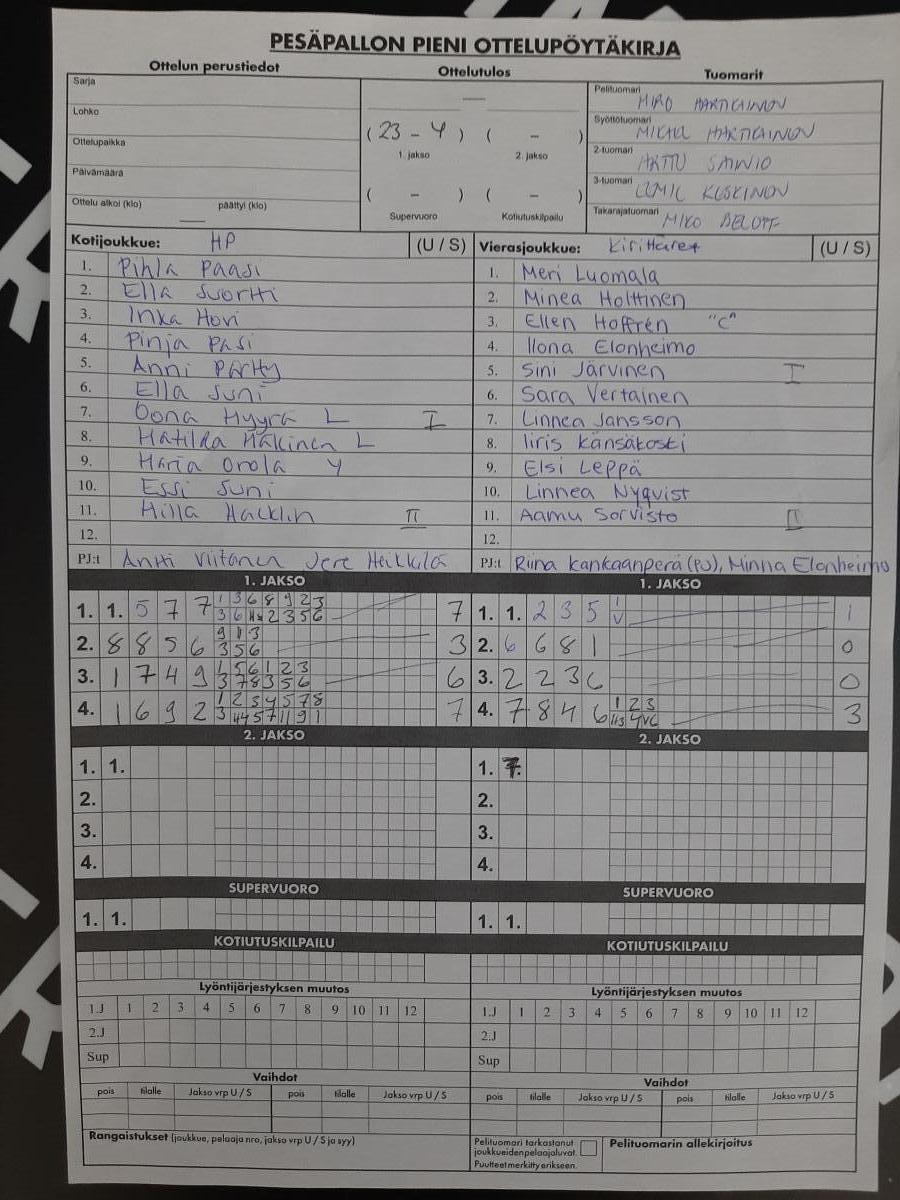 PESÄPALLON PIENI OTTELUPÖYTÄKIRJA
Ottelun perustiedot Ottelutulos Tuomarit
Sarja
Lohko
Ottelupaikka
Päivämäärä
Ottelu alkoi (klo) päättyi (klo)
—
( 23 - 4 ) ( - )
1. jakso 2. jakso
( - ) ( - )
Supervuoro Kotiutuskilpailu
Pelituomari MIRO HARTIKAINEN
Syöttötuomari HARTIKAINEN
2-tuomari ARTTU SAINIO
3-tuomari KOSKINEN
Takarajatuomari MIKO
Kotijoukkue: HP (U / S)
1. Pihla Paasi
2. Ella Suortti
3. Inka Hovi
4. Pinja Pasi
5. Anni Pärtty
6. Ella Juni
7. Oona Hyyrä L I
8. Matilda Mäkinen L
9. Maria Orola Y
10. Essi Juni
11. Hilla Hacklin II
12.
PJ:t Antti Viitanen Jere Heikkilä
Vierasjoukkue: Kirittäret (U / S)
1. Meri Luomala
2. Minea Holttinen
3. Ellen Hoffrén "C"
4. Ilona Elonheimo
5. Sini Järvinen I
6. Sara Vertainen
7. Linnea Jansson
8. Iiris Känsäkoski
9. Elsi Leppä
10. Linnea Nyqvist
11. Aamu Sorvisto II
12.
PJ:t Riina Kankaanperä (PJ), Minna Elonheimo
1. JAKSO
1. 1. 5 7 7 1 3 6 8 9 2 3 7
3 6 2 3 5 6
2. 8 8 5 6 9 1 3 3
3 5 6
3. 1 7 4 9 1 5 6 1 2 3 6
3 7 8 3 5 6
4. 1 6 9 2 1 2 3 4 5 7 8 7
3 4 4 5 7 11 9 1
1. JAKSO
1. 1. 2 3 5 1 1
V
2. 6 6 8 1 0
3. 2 2 3 6 0
4. 7 8 4 6 1 2 3 3
2. JAKSO
1. 1.
2.
3.
4.
2. JAKSO
1.
2.
3.
4.
SUPERVUORO
1. 1.
SUPERVUORO
1. 1.
KOTIUTUSKILPAILU
KOTIUTUSKILPAILU
Lyöntijärjestyksen muutos
1.J 1 2 3 4 5 6 7 8 9 10 11 12
2.J
Sup
Lyöntijärjestyksen muutos
1.J 1 2 3 4 5 6 7 8 9 10 11 12
2.J
Sup
Vaihdot
pois tilalle Jakso vrp U / S pois tilalle Jakso vrp U / S
Vaihdot
pois tilalle Jakso vrp U / S pois tilalle Jakso vrp U / S
Rangaistukset (joukkue, pelaaja nro, jakso vrp U / S ja syy)
Pelituomari tarkastanut
joukkueiden pelaajaluvat.
Puutteet merkitty erikseen.
Pelituomarin allekirjoitus